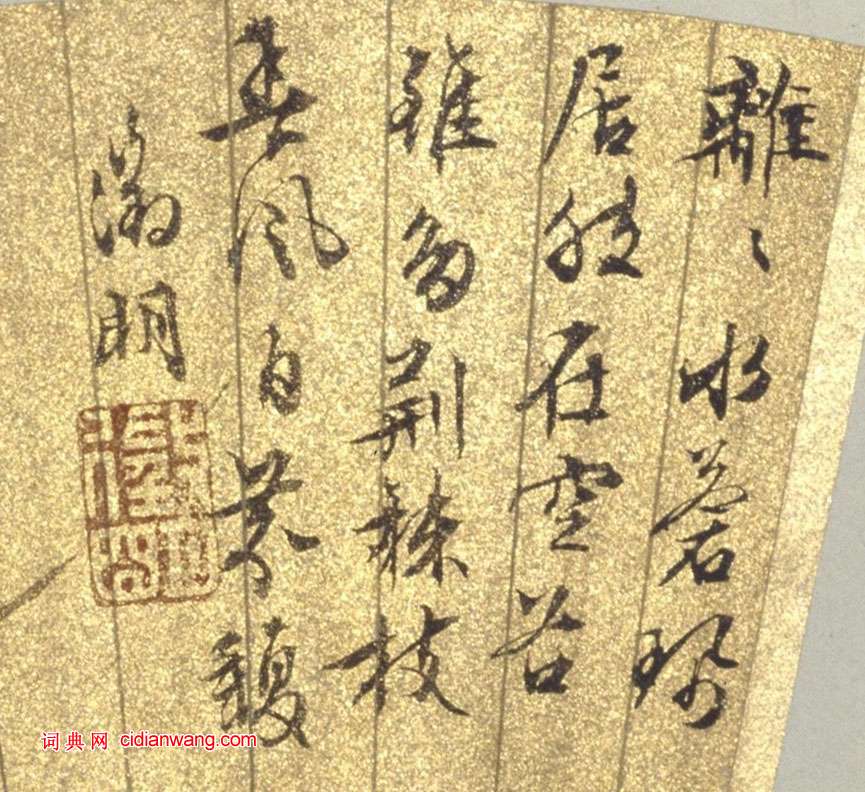 離〻水蒼珮
居然在空谷
雖多荊棘枝
春風自芬馥
徵明
词典网 cidianwang.com